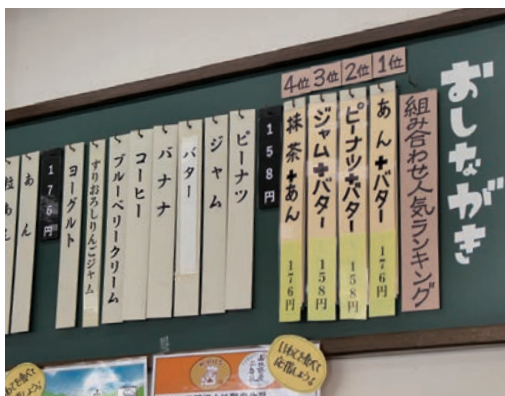 おしながき
組み合わせ人気ランキング
1位
あん+バター
176円
2位
ピーナツ+バター
158円
3位
ジャム+バター
158円
4位
抹茶+あん
176円
158円
ピーナツ
ジャム
バター
バナナ
コーヒー
ブルーベリークリーム
すりおろしりんごジャム
ヨーグルト
176円
あん
粒あん